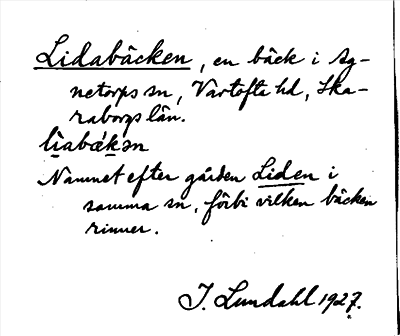 Lidabäcken, en bäck i Ag-
netorps sn, Vartofta hd, Ska-
raborgs län.
lìabǽkən
Namnet efter gården Liden i
samma sn, förbi vilken bäcken
rinner.
I. Lundahl 1927.